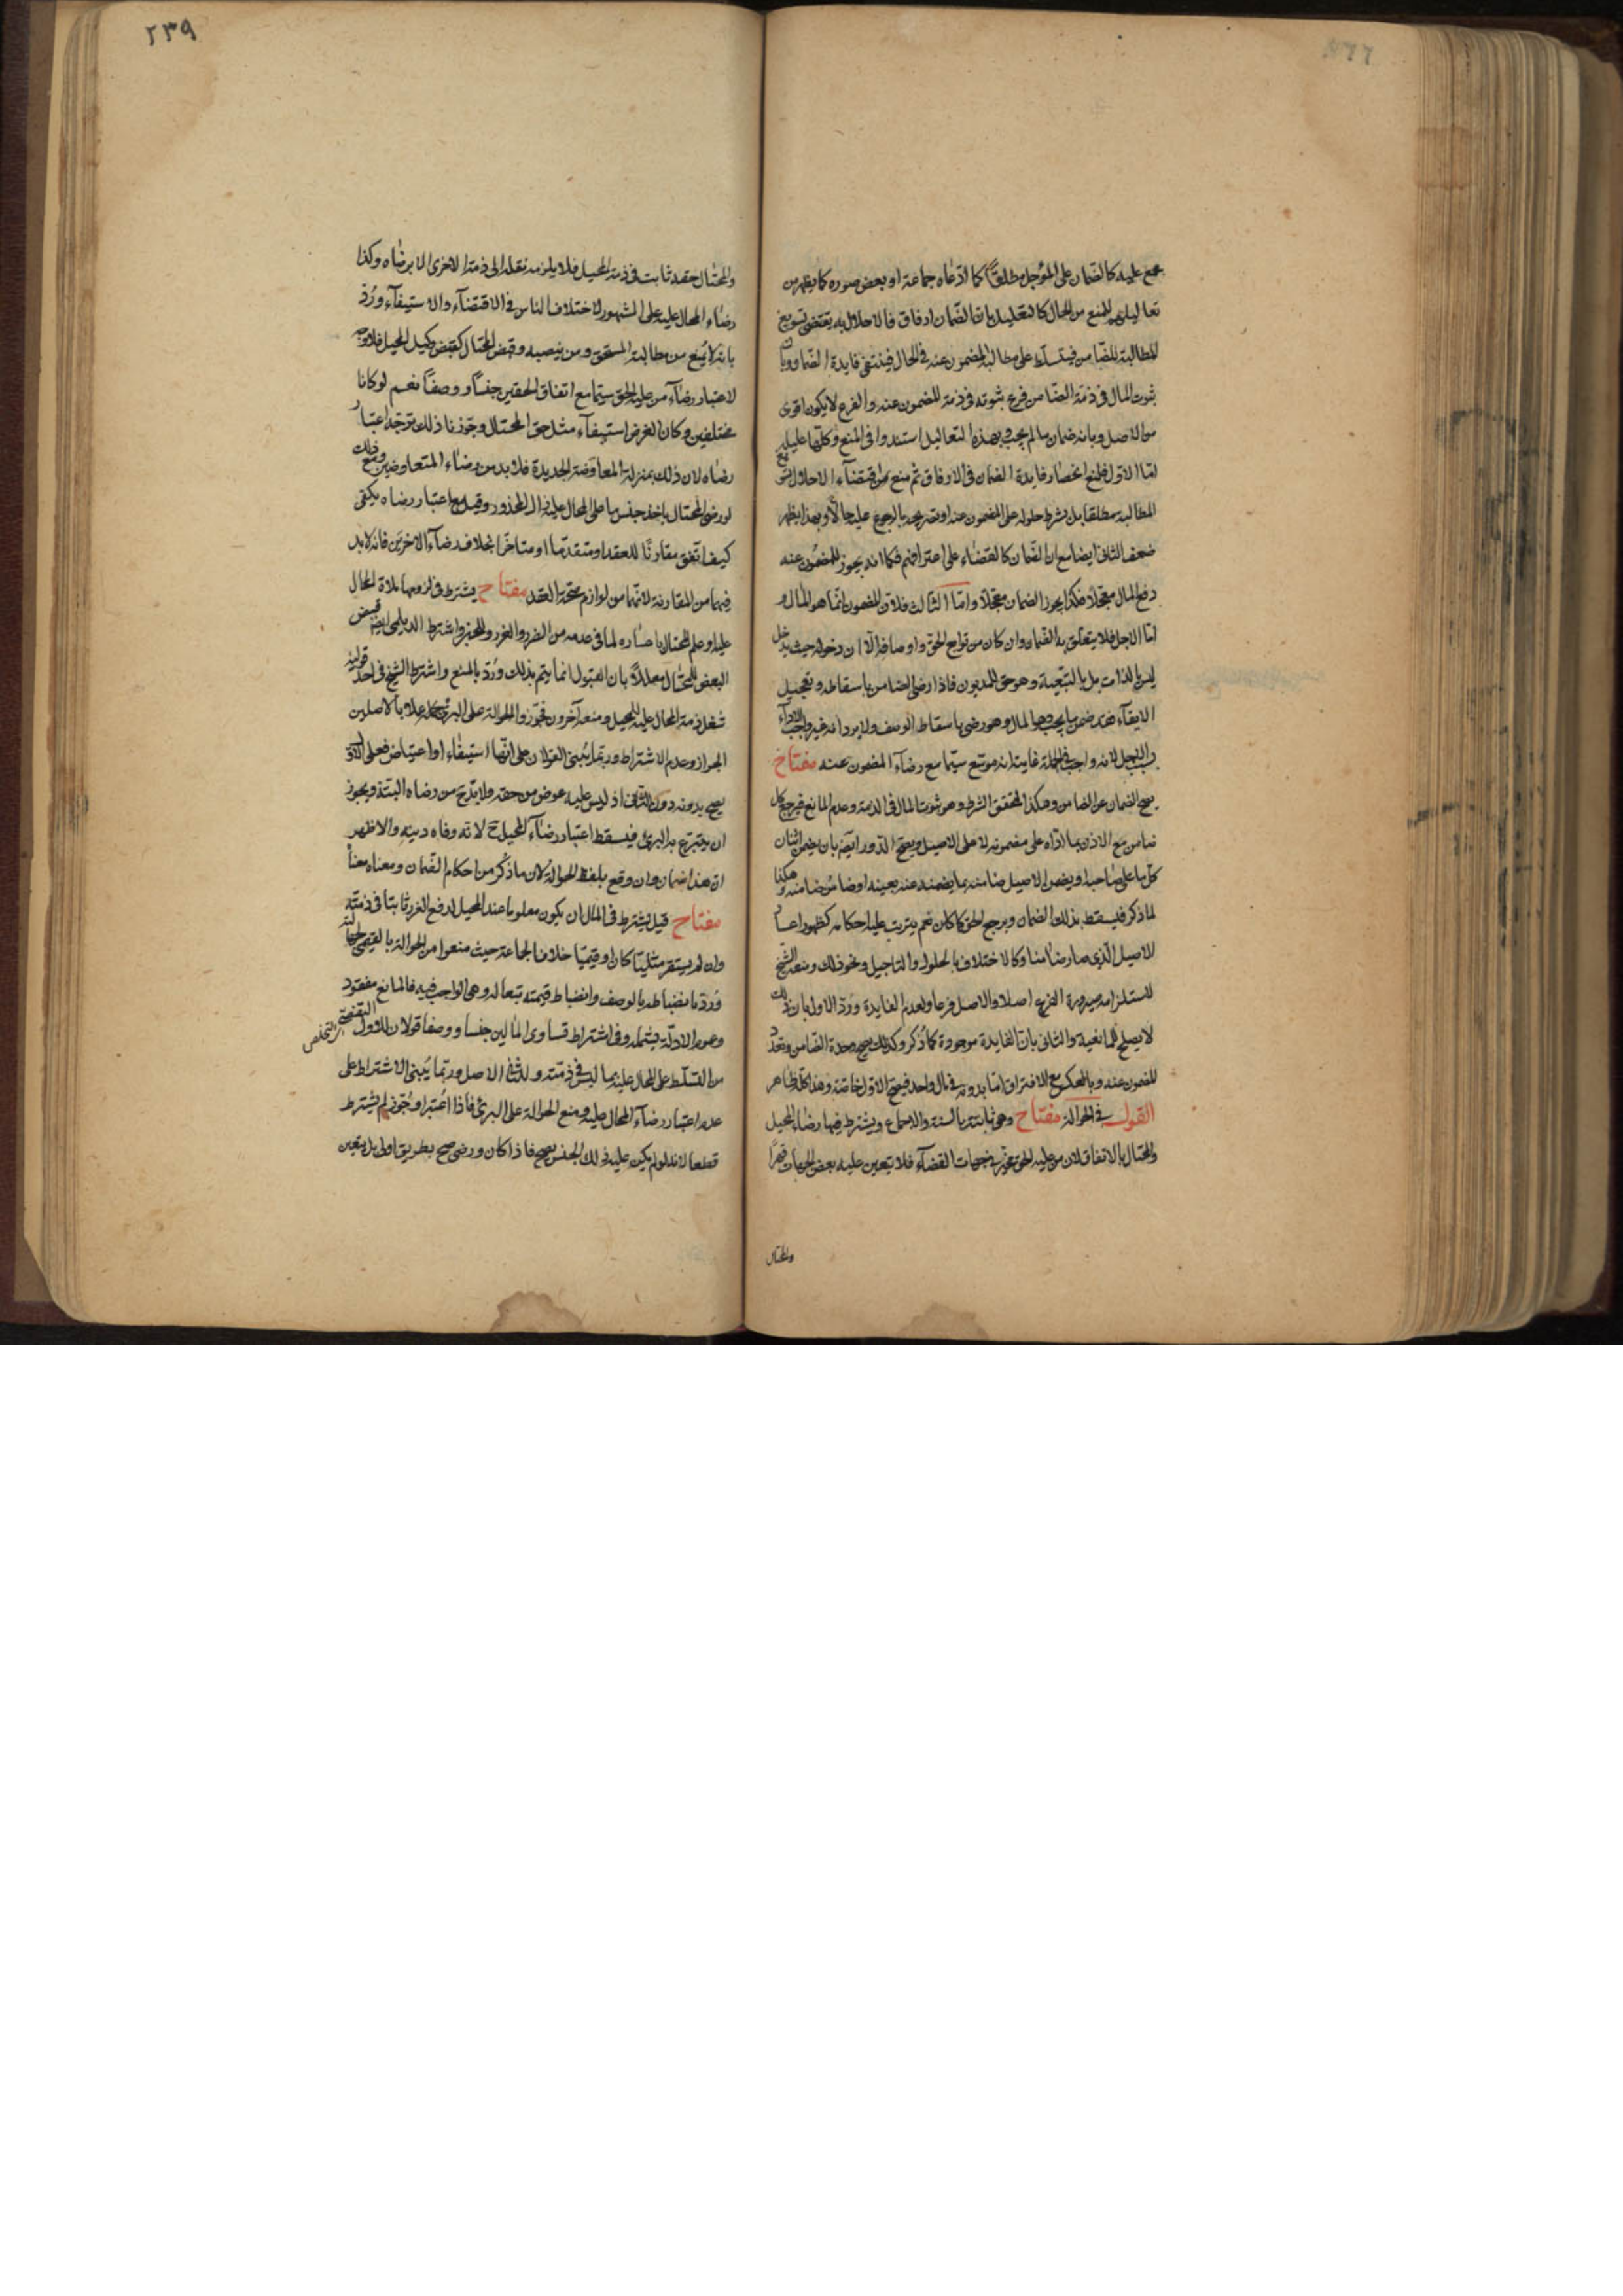 مجمع عليه كالضمان على المؤجل مطلقاً كما ادّعاه جماعة او بعض صوره كما يظهر من
تعاليلهم للمنع من الحال كالتعليل بان الضمان ارفاق فالاخلال به يقتضى تسويغ
المطالبة للضامن فيتسلّط على مطالبة المضمون عنه فى الحال فينتفى فايدة الضمان وبان
ثبوت المال فى ذمة الضامن فرع ثبوته فى ذمة المضمون عنه والفرع لا يكون اقوى
من الاصل وبانه ضمان ما لم يجب فبهذه التعاليل استندوا فى المنع وكلها عليلة
امّا الاول فلمنع انحصار فايدة الضمان فى الارفاق ثم منع اقتضاء الاحلال تسويغ
المطالبة مطلقا بل بشرط حلوله على المضمون عنه او تصريحه بالرجوع عليه حالاً وبهذا يظهر
ضعف الثانى ايضا مع ان الضمان كالقضاء على اعترافهم فكما انه يجوز للمضمون عنه
دفع المال معجّلا فكذا يجوز الضمان معجّلا وامّا الثالث فلان المضمون انّما هو المال و
امّا الاجل فلا يتعلق به الضمان وان كان من توابع الحق واوصافه الّا ان دخوله حيث يدخل
ليس بالذات بل بالتبعية وهو حق المديون فاذا رضى الضامن باسقاطه وتعجيل
الايفاء فقد ضمن ما يجب وهو المال وهو رضى باسقاط الوصف ولا يرد انه غير واجب الاداء
لانه واجب فى الجملة غايته انه موسّع سيّما مع رضاء المضمون عنه مفتاح
يصح الضمان عن الضامن وهكذا لتحقق الشرط وهو ثبوت المال فى الذمة وعدم المانع فيرجع كل
ضامن مع الاذن بما ادّاه على مضمونه لا على الاصيل ويصح الدور ايضا بان يضمن اثنان
كل ما على صاحبه او يضمن الاصيل ضامنه بما يضمنه عنه بعينه او ضامن ضامنه وهكذا
لما ذكر فيسقط بذلك الضمان ويرجع الحق كما كان نعم يترتب عليه احكامه كظهور اعسار
الاصيل الّذى صار ضامنا وكالاختلاف بالحلول والتاجيل ونحو ذلك ومنعه الشيخ
لاستلزامه صيرورة الفرع اصلا والاصل فرعا ولعدم الفايدة وردّ الاول بان ذلك
لا يصلح للمانعية والثانى بان الفايدة موجودة كما ذُكر وكذلك يصح وحدة الضامن وتعدّد
المضمون عنه وبالعكس مع الافتراق امّا بدونه فى مال واحد فيصح الاول خاصّة وهذا كله ظاهر
القول فى الحوالة مفتاح وهى ثابتة بالسنة والاجماع ويشترط فيها رضاء المحيل
والمحتال بالاتفاق لان من عليه الحق مخيّر فى جهات القضاء فلا يتعين عليه بعض الجهات قهرًا
والمحتال
٢٣٩
والمحتال حقه ثابت فى ذمة المحيل فلا يلزمه نقله الى ذمة الاخرى الا برضاه وكذا
رضاء المحال عليه على المشهور لاختلاف الناس فى الاقتضاء والاستيفاء ورُدّ
بانه لا يمنع من مطالبة المستحق ومن ينصبه وقبض المحتال كقبض وكيل المحيل فلا وجه
لاعتبار رضاء من عليه الحق سيّما مع اتفاق الحقين جنسًا ووصفًا نعم لو كانا
مختلفين وكان الغرض استيفاء مثل حق المحتال وجوّزنا ذلك توجّه اعتبار
رضاه لان ذلك بمنزلة المعاوضة الجديدة فلا بد من رضاء المتعاوضين ومع ذلك
لو رضى المحتال باخذ جنس ما على المحال عليه زال المحذور وقيل مع اعتبار رضاه يكفى
كيف اتّفق مقارنًا للعقد او متقدّما او متاخّرا بخلاف رضاء الاخرين فانه لا بد
فيهما من المقارنة لانهما من لوازم صحة العقد مفتاح يشترط فى لزومها ملاءة المحال
عليه او علم المحتال باعساره لما فى عدمه من الضرر والغرر وللخبر واشترط الديلمى ايضا قبض
البعض للمحتال معللاً بان القبول انما يتم بذلك ورُدّ بالمنع واشترط الشيخ فى احد قوليه
شغل ذمة المحال عليه للمحيل ومنعه آخرون فجوّزوا الحوالة على البرئ عملا بالاصلين
الجواز وعدم الاشتراط وربّما يُبنى القولان على انّها استيفاء او اعتياض فعلى الاول
يصح بدونه دون الثانى اذ ليس عليه عوض من حقه ولا بدّ ح من رضاه البتة ويجوز
ان يتبرع به البرئ فيسقط اعتبار رضاء المحيل ح لانه وفاء دينه والاظهر
ان هذا ضمان وان وقع بلفظ الحوالة لان ما ذكر من احكام الضمان ومعناه معناً
مفتاح قيل يشترط فى المال ان يكون معلوما عند المحيل لدفع الغرر ثابتاً فى ذمته
وان لم يستقر مثليّا كان او قيميّا خلافا لجماعة حيث منعوا من الحوالة بالقيمى لجهالته
ورُدّ بانضباطه بالوصف وانضباط قيمته تبعا له وهى الواجب فيه فالمانع مفقود
وعموم الادلّة يشمله وفى اشتراط تساوى المالين جنسا ووصفا قولان للاول التفصّى
والتخلص
من التسلّط على المحال عليه بما ليس فى ذمته وللثانى الاصل وربّما يُبنى الاشتراط على
عدم اعتبار رضاء المحال عليه ومنع الحوالة على البرئ فاذا اعتبر او جُوّز لم يُشترط
قطعا لانه لو لم يكن عليه ذلك الجنس يصح فاذا كان ورضى صح بطريق اولى بل يتعين